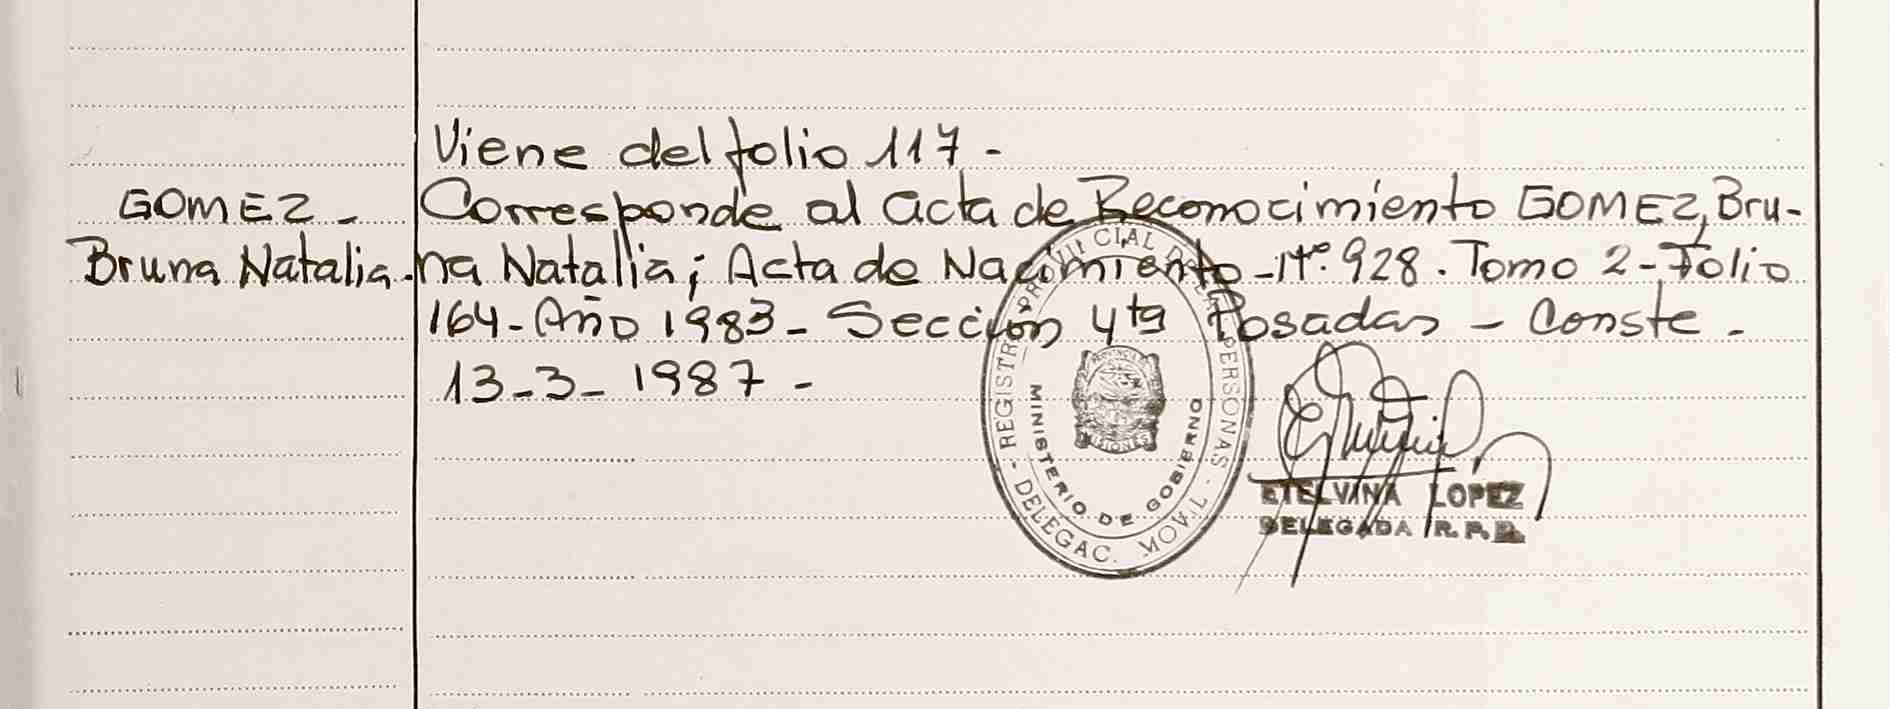 Viene del folio 117 -
GOMEZ - Corresponde al acta de Reconocimiento GOMEZ, Bru-
Bruna Natalia. na Natalia; Acta de Nacimiento - Nº. 928. Tomo 2 - Folio
164 - Año 1983 - Sección 4ta Posadas - Conste -
13-3-1987 -
REGISTRO PROVINCIAL DE LAS PERSONAS - DELEGAC. MOVIL -
MINISTERIO DE GOBIERNO
PROVINCIA
MISIONES
ETELVINA LOPEZ
DELEGADA R.P.P.